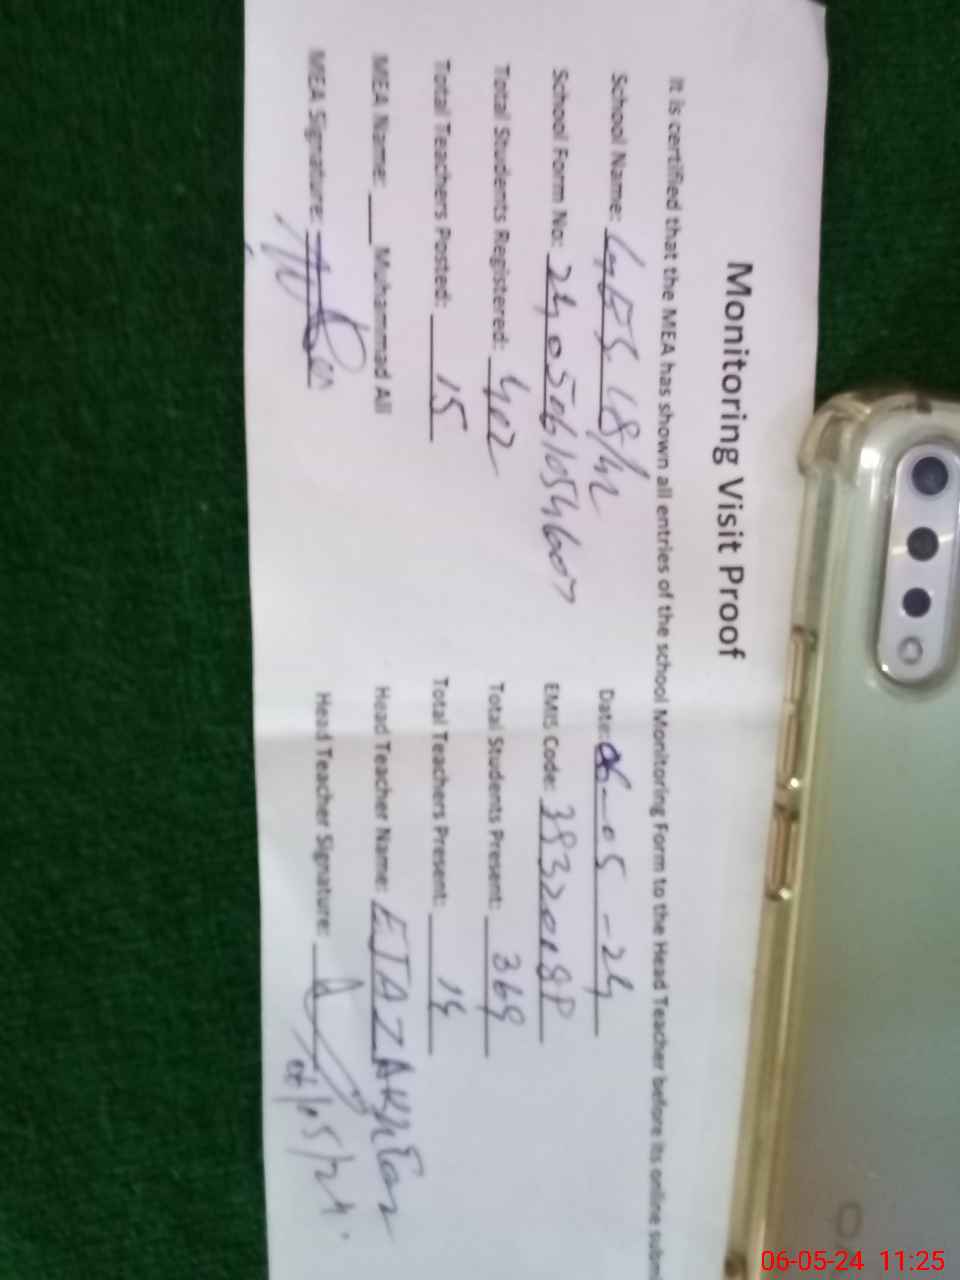 Monitoring Visit Proof
It is certified that the MEA has shown all entries of the school Monitoring Form to the Head Teacher before its online subm
School Name: GES 18/4L Date: 06-05-24
School Form No: EMIS Code:
Total Students Registered: 402 Total Students Present: 369
Total Teachers Posted: 15 Total Teachers Present: 14
MEA Name: Muhammad Ali Head Teacher Name: EJAZ AKHTAR
MEA Signature: Head Teacher Signature:
06/05/24.
06-05-24 11:25